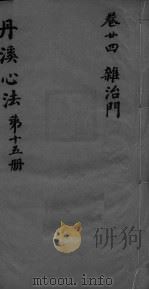 卷廿四 雜治門
丹溪心法 第十五册
mtoou.info